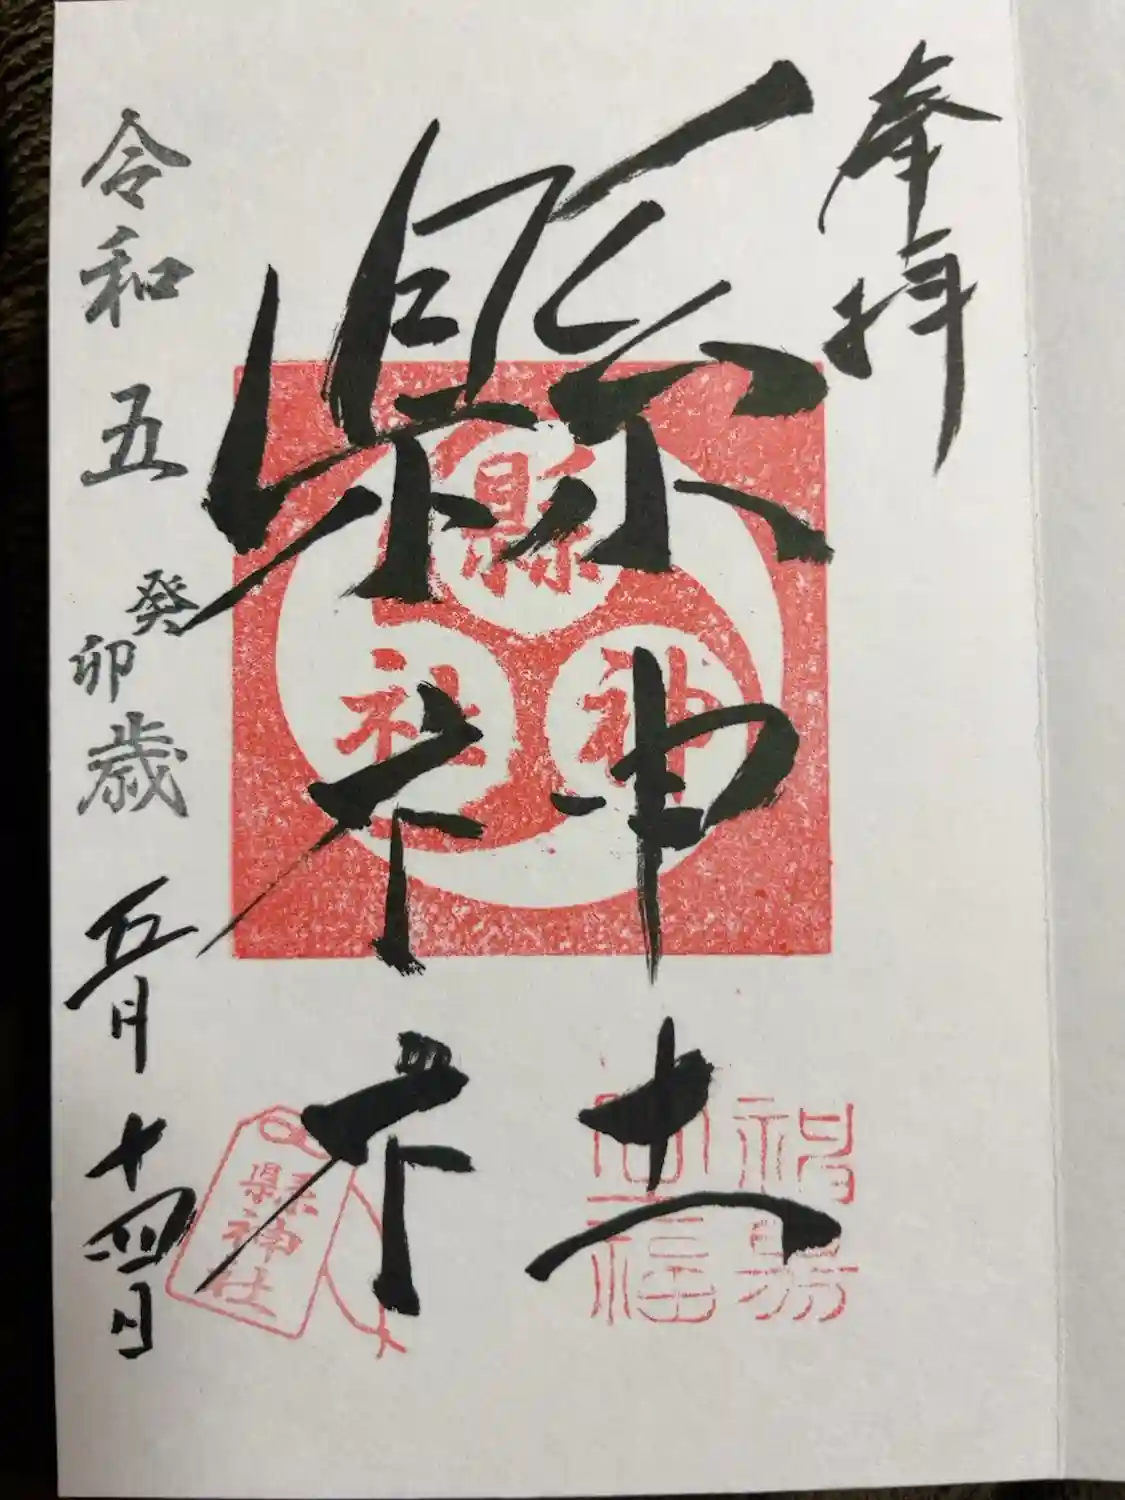 奉拝
縣神社
縣
神
社
縣神社
令和五癸卯歳五月十四日